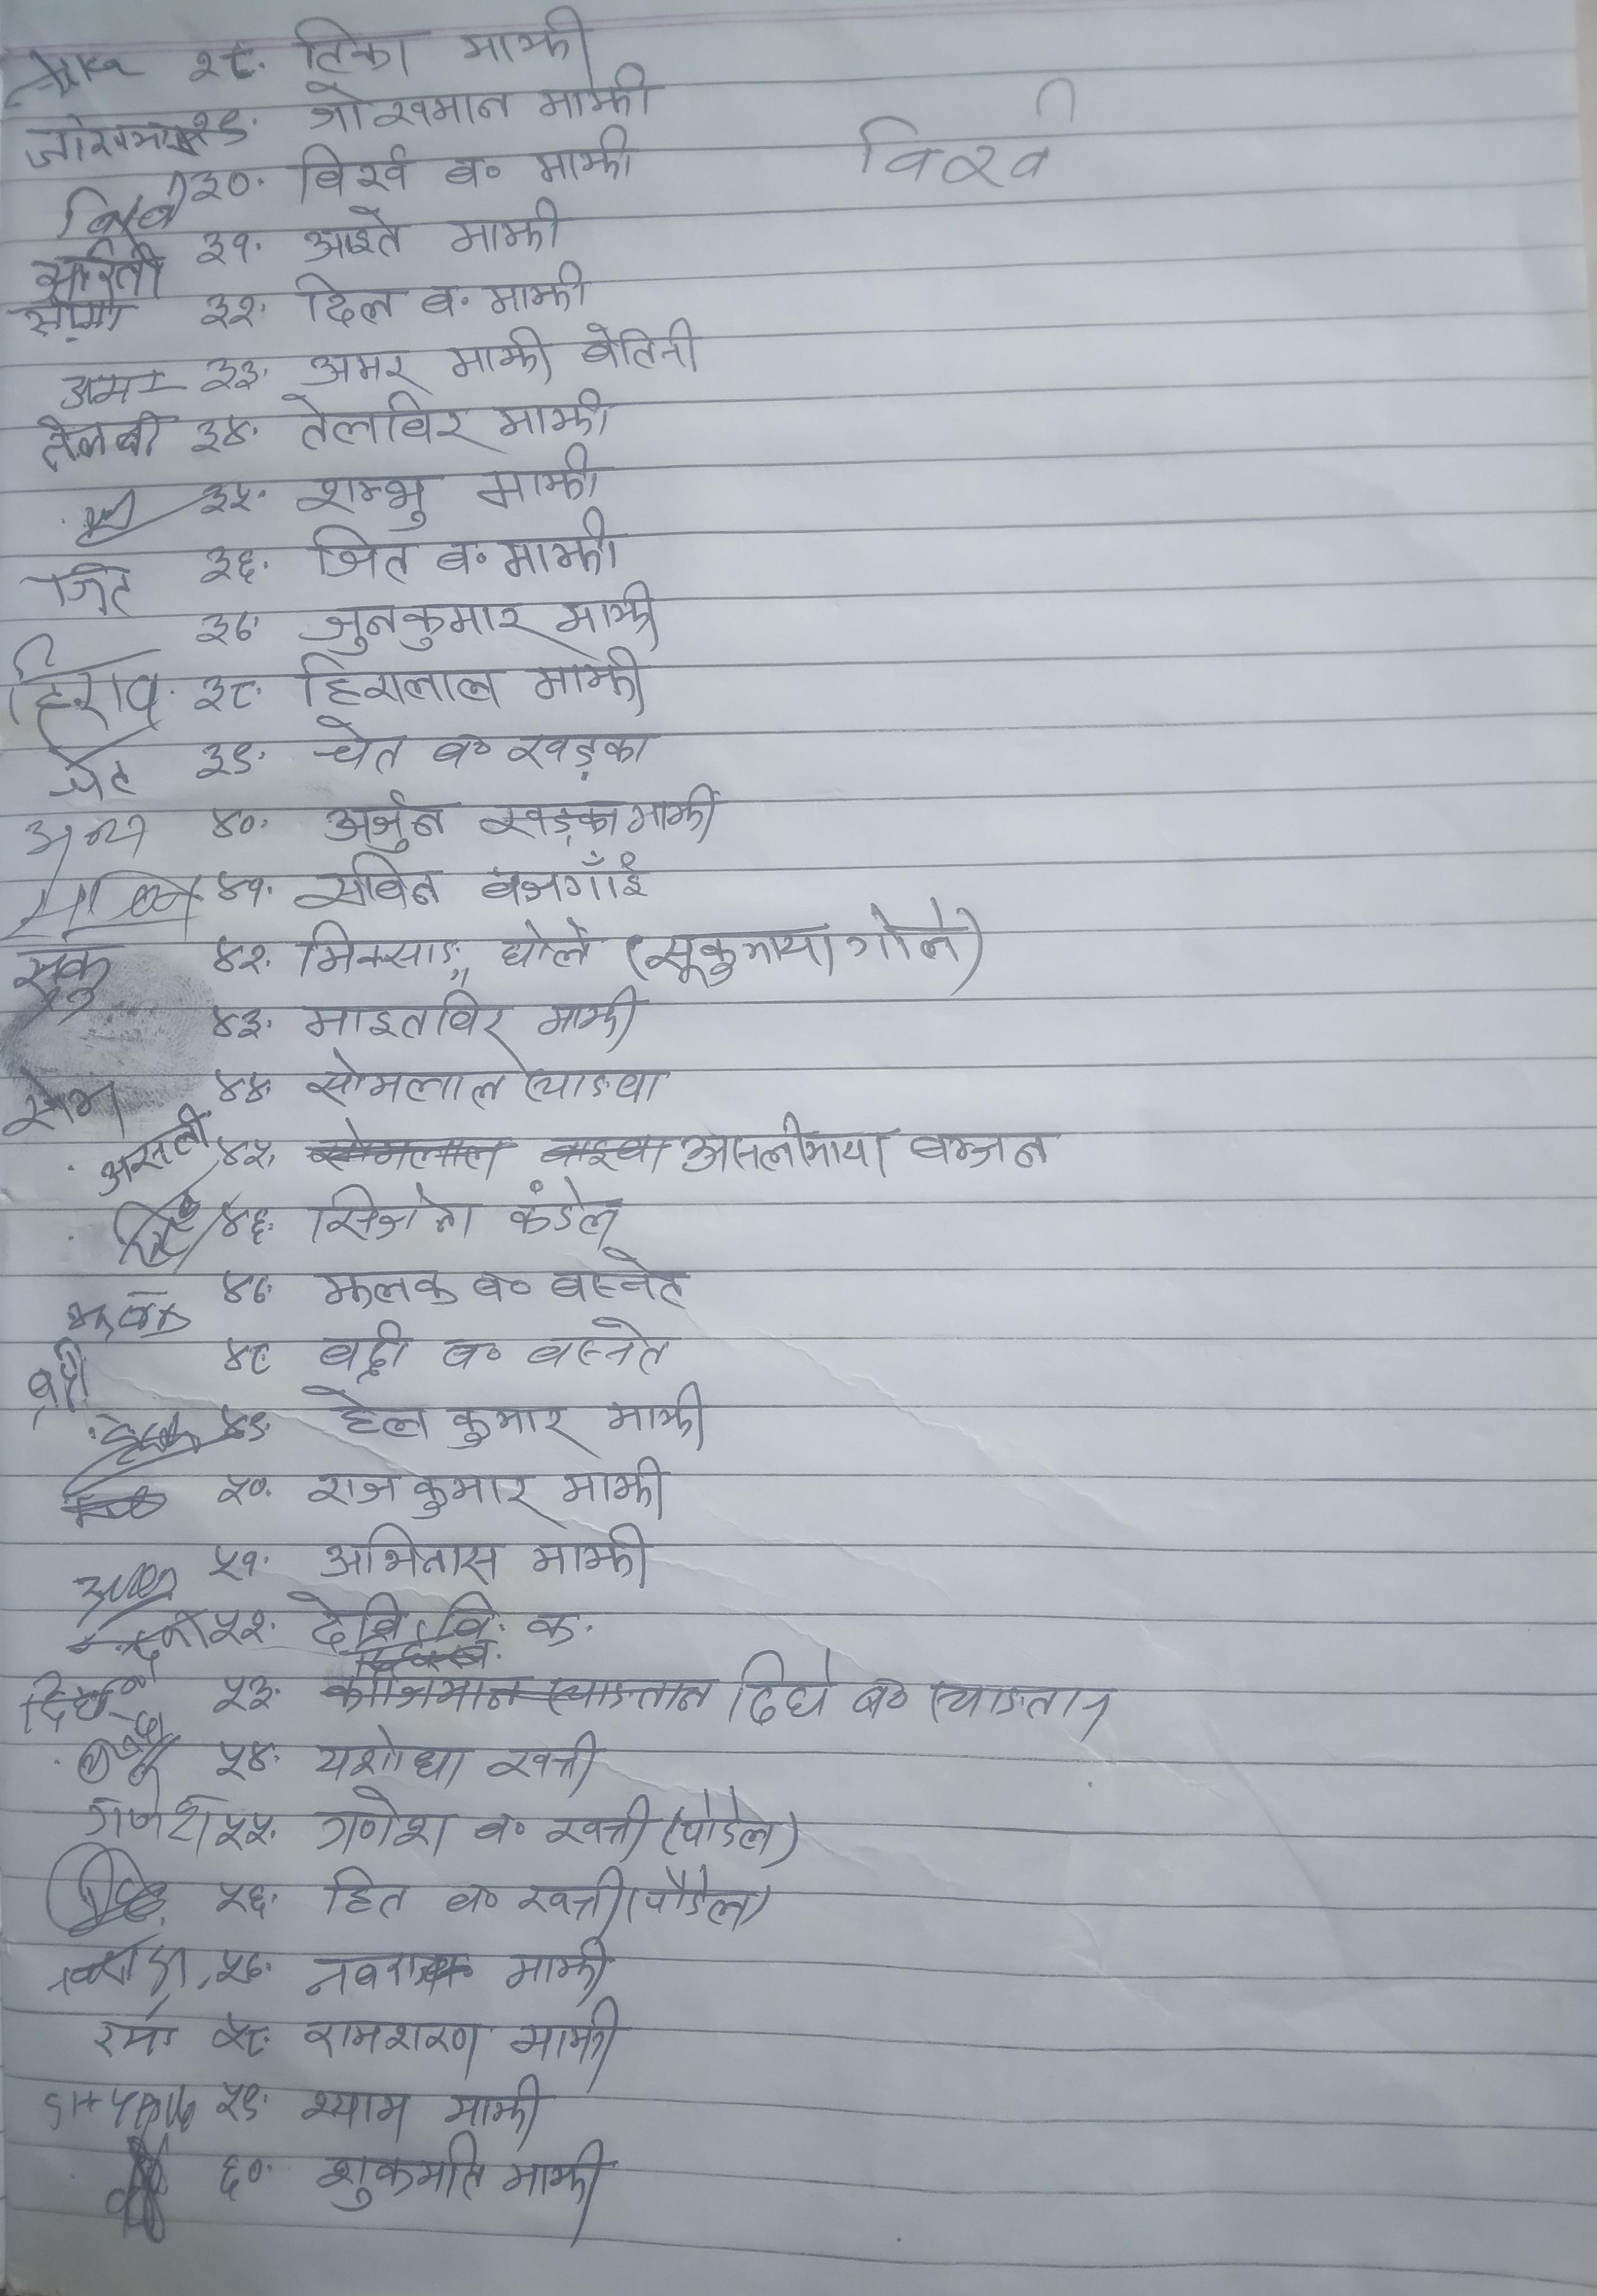 २८. टिका माझी
जोखमान २९. जोखमान माझी
३०. विर्ख ब० माझी विर्ख
आईती ३१. आइते माझी
३२. दिल ब. माझी
अमर ३३. अमर माझी बेतिनी
तेलवी ३४. तेलविर माझी
३५. शम्भु माझी
जित ३६. जित ब० माझी
३७. जुनकुमार माझी
३८. हिरालाल माझी
चेत ३९. चेत ब० खड्का
४०. अर्जुन खड्का माझी
४१. सबिन बजगाँई
सूकु ४२. मिक्साङ घोले (सूकुमाया गोले)
४३. माइतविर माझी
सोम ४४. सोमलाल त्याङवा
असली ४५. सोमलाल वाइवा आसलीमाया बम्जन
४६. सिजन कंडेल
४७. झलक ब० बस्नेत
बद्री ४८ बद्री ब० बस्नेत
४९. हेल कुमार माझी
५०. राजकुमार माझी
५१. अभिनास माझी
५२. देवि वि. क.
५३. काजिमान त्याङतान दिघे ब० त्याङतान
५४. यशोधा खत्री
गणेश ५५. गणेश ब० खत्री (पौडेल)
५६. हित ब० खत्री (पौडेल)
५७. नवराज माझी
५८. रामशरण माझी
५९. श्याम माझी
६०. शुकमति माझी